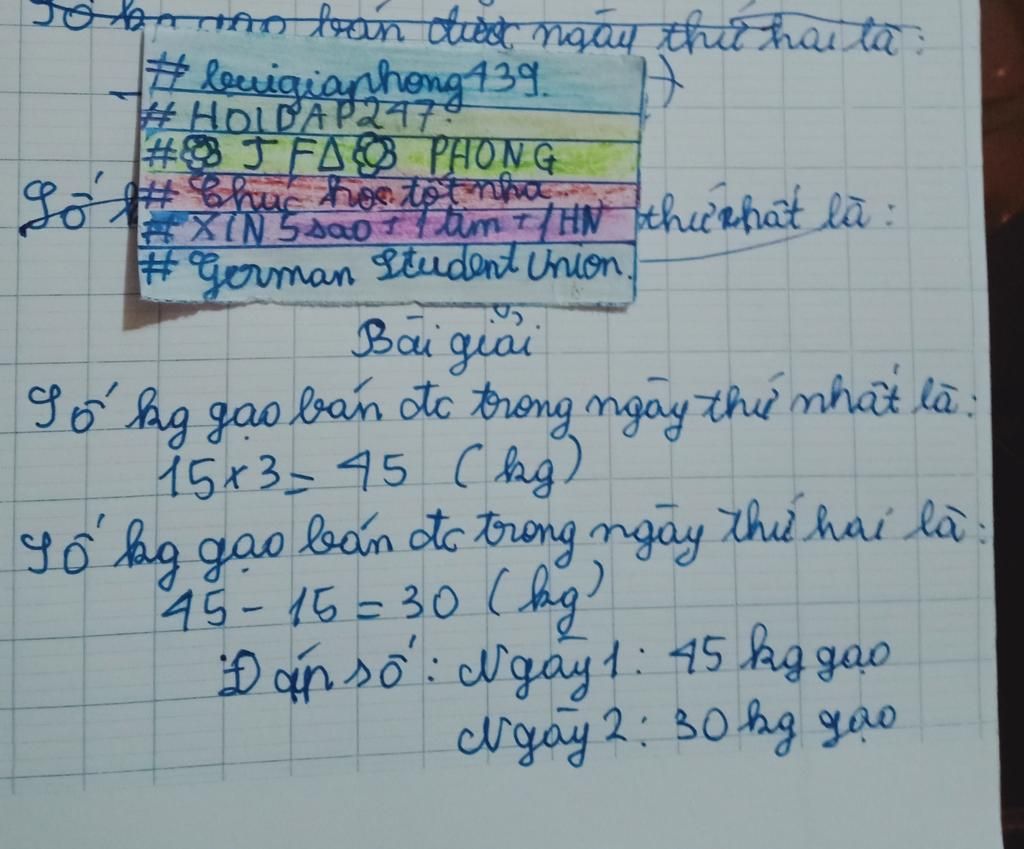 Số bán được ngày thứ hai là:
# buigiaphong439.
# HOIDAP247.
# JFΔ PHONG
# Chúc học tốt nha
Số # XIN 5 sao + 1 tim + 1HN thứ nhất là:
# German Student Union.
Bài giải
Số kg gạo bán đc trong ngày thứ nhất là:
15 x 3 = 45 (kg)
Số kg gạo bán đc trong ngày thứ hai là:
45 - 15 = 30 (kg)
Đáp số: Ngày 1: 45 kg gạo
Ngày 2: 30 kg gạo